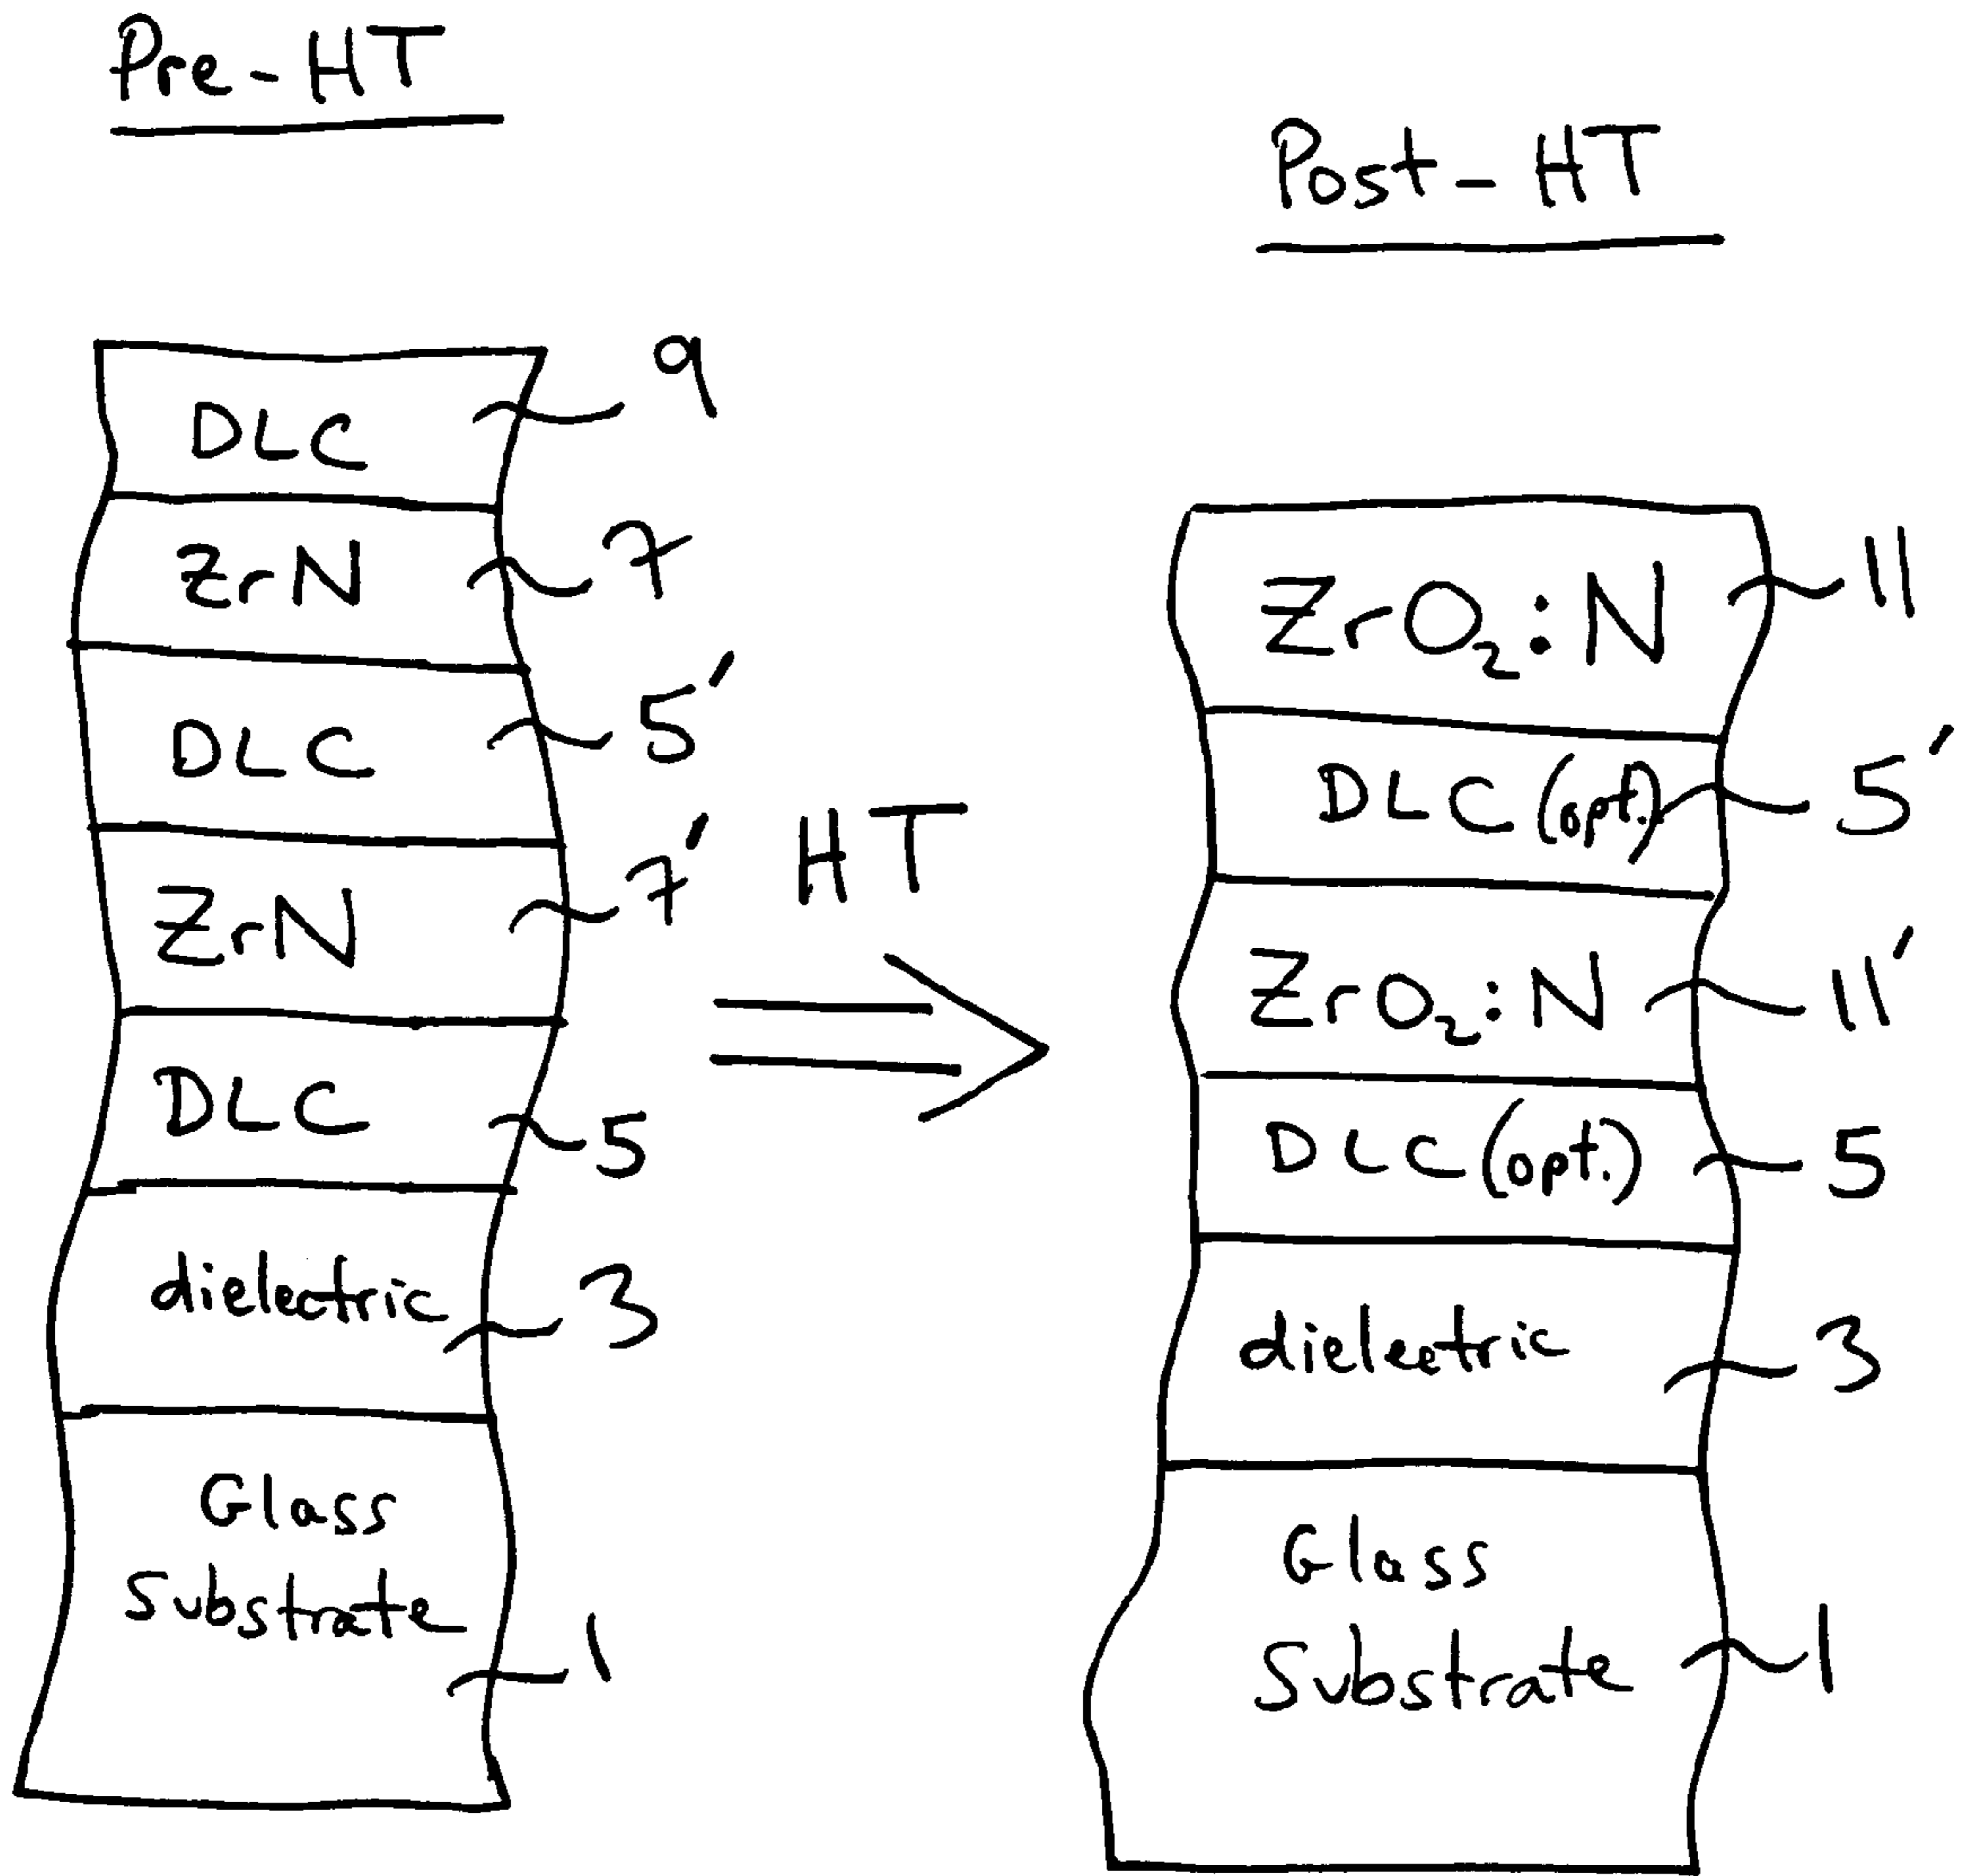 Pre-HT
DLC 9
ZrN 7
DLC 5'
ZrN 7'
DLC 5
dielectric 3
Glass
Substrate 1
HT
Post-HT
ZrO₂:N 11
DLC (opt.) 5'
ZrO₂:N 11'
DLC (opt.) 5
dielectric 3
Glass
Substrate 1